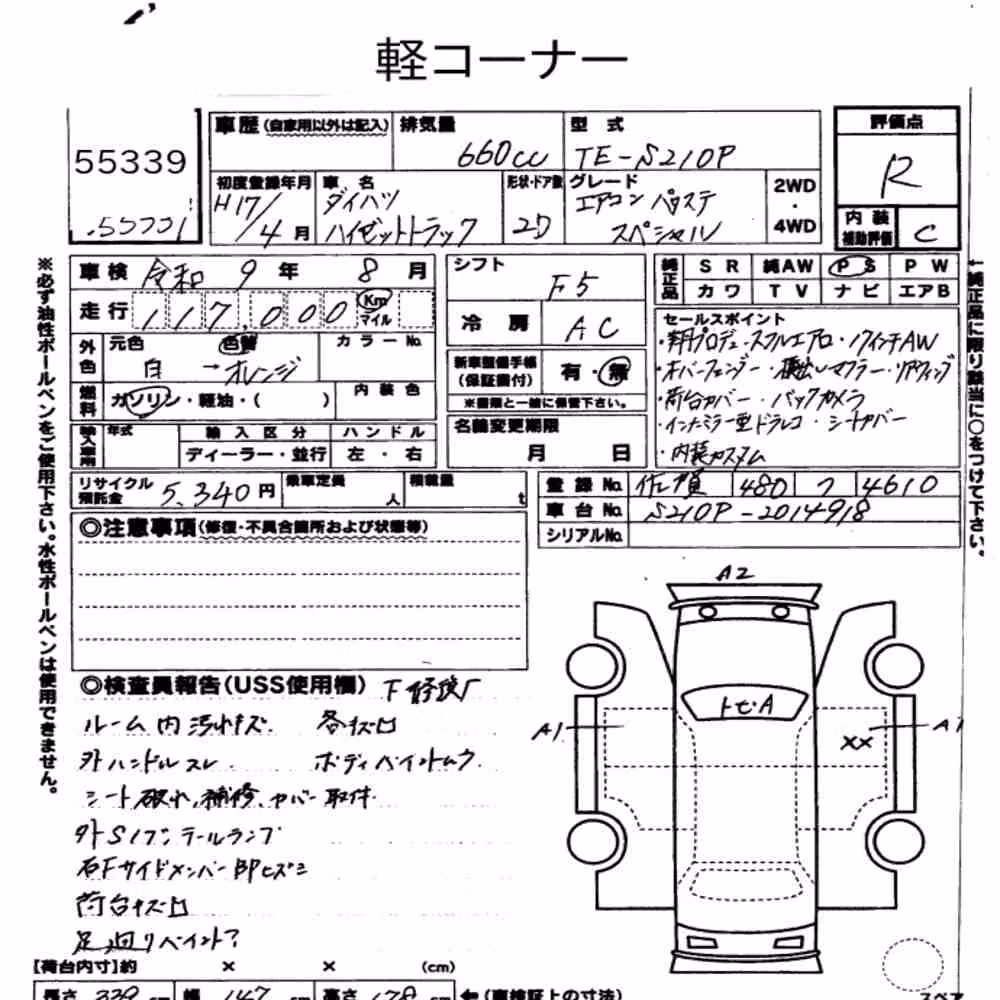 軽コーナー
55339
55331
車歴(自家用以外は記入) 排気量 660cc 型式 TE-S210P
初度登録年月 H17/4月 車名 ダイハツ ハイゼットトラック 形状・ドア数 2D グレード エアコン パワステ スペシャル 2WD・4WD
評価点 R
内装補助評価 C
※必ず油性ボールペンをご使用下さい。水性ボールペンは使用できません。
車検 令和 9年 8月
走行 117,000 Km マイル
外色 元色 白 → 色替 オレンジ カラーNo.
燃料 ガソリン・軽油・( ) 内装色
輸入車用 年式 輸入区分 ディーラー・並行 ハンドル 左・右
シフト F5
冷房 AC
新車整備手帳(保証書付) 有・無
※書類と一緒に保管下さい。
名義変更期限 月 日
純正品 SR 純AW PS PW
カワ TV ナビ エアB
セールスポイント
エアロ・17インチAW
・オーバーフェンダー・横出しマフラー・リヤウィング
・荷台カバー・バックカメラ
・インナーミラー型ドラレコ・シートカバー
・内装カスタム
←純正品に限り該当に○をつけて下さい。
リサイクル預託金 5,340円 乗車定員 人 積載量 t
登録No. 佐賀 480 フ 4610
車台No. S210P-2014918
シリアルNo.
◎注意事項(修復・不具合箇所および状態等)
◎検査員報告(USS使用欄) 下修復
ルーム内汚れキズ 各キズ凹
外ハンドルスレ ボディペイントムラ
シート破れ、補修、カバー取付
外Sノブ、テールランプ
右Fサイドメンバー部Pヒズミ
荷台キズ凹
足廻りペイント?
A2
トビ・A
A1
XX
A1
【荷台内寸】約 × × (cm)
長さ 339 cm 幅 147 cm 高さ 178 cm ←(車検証上の寸法)
スペア